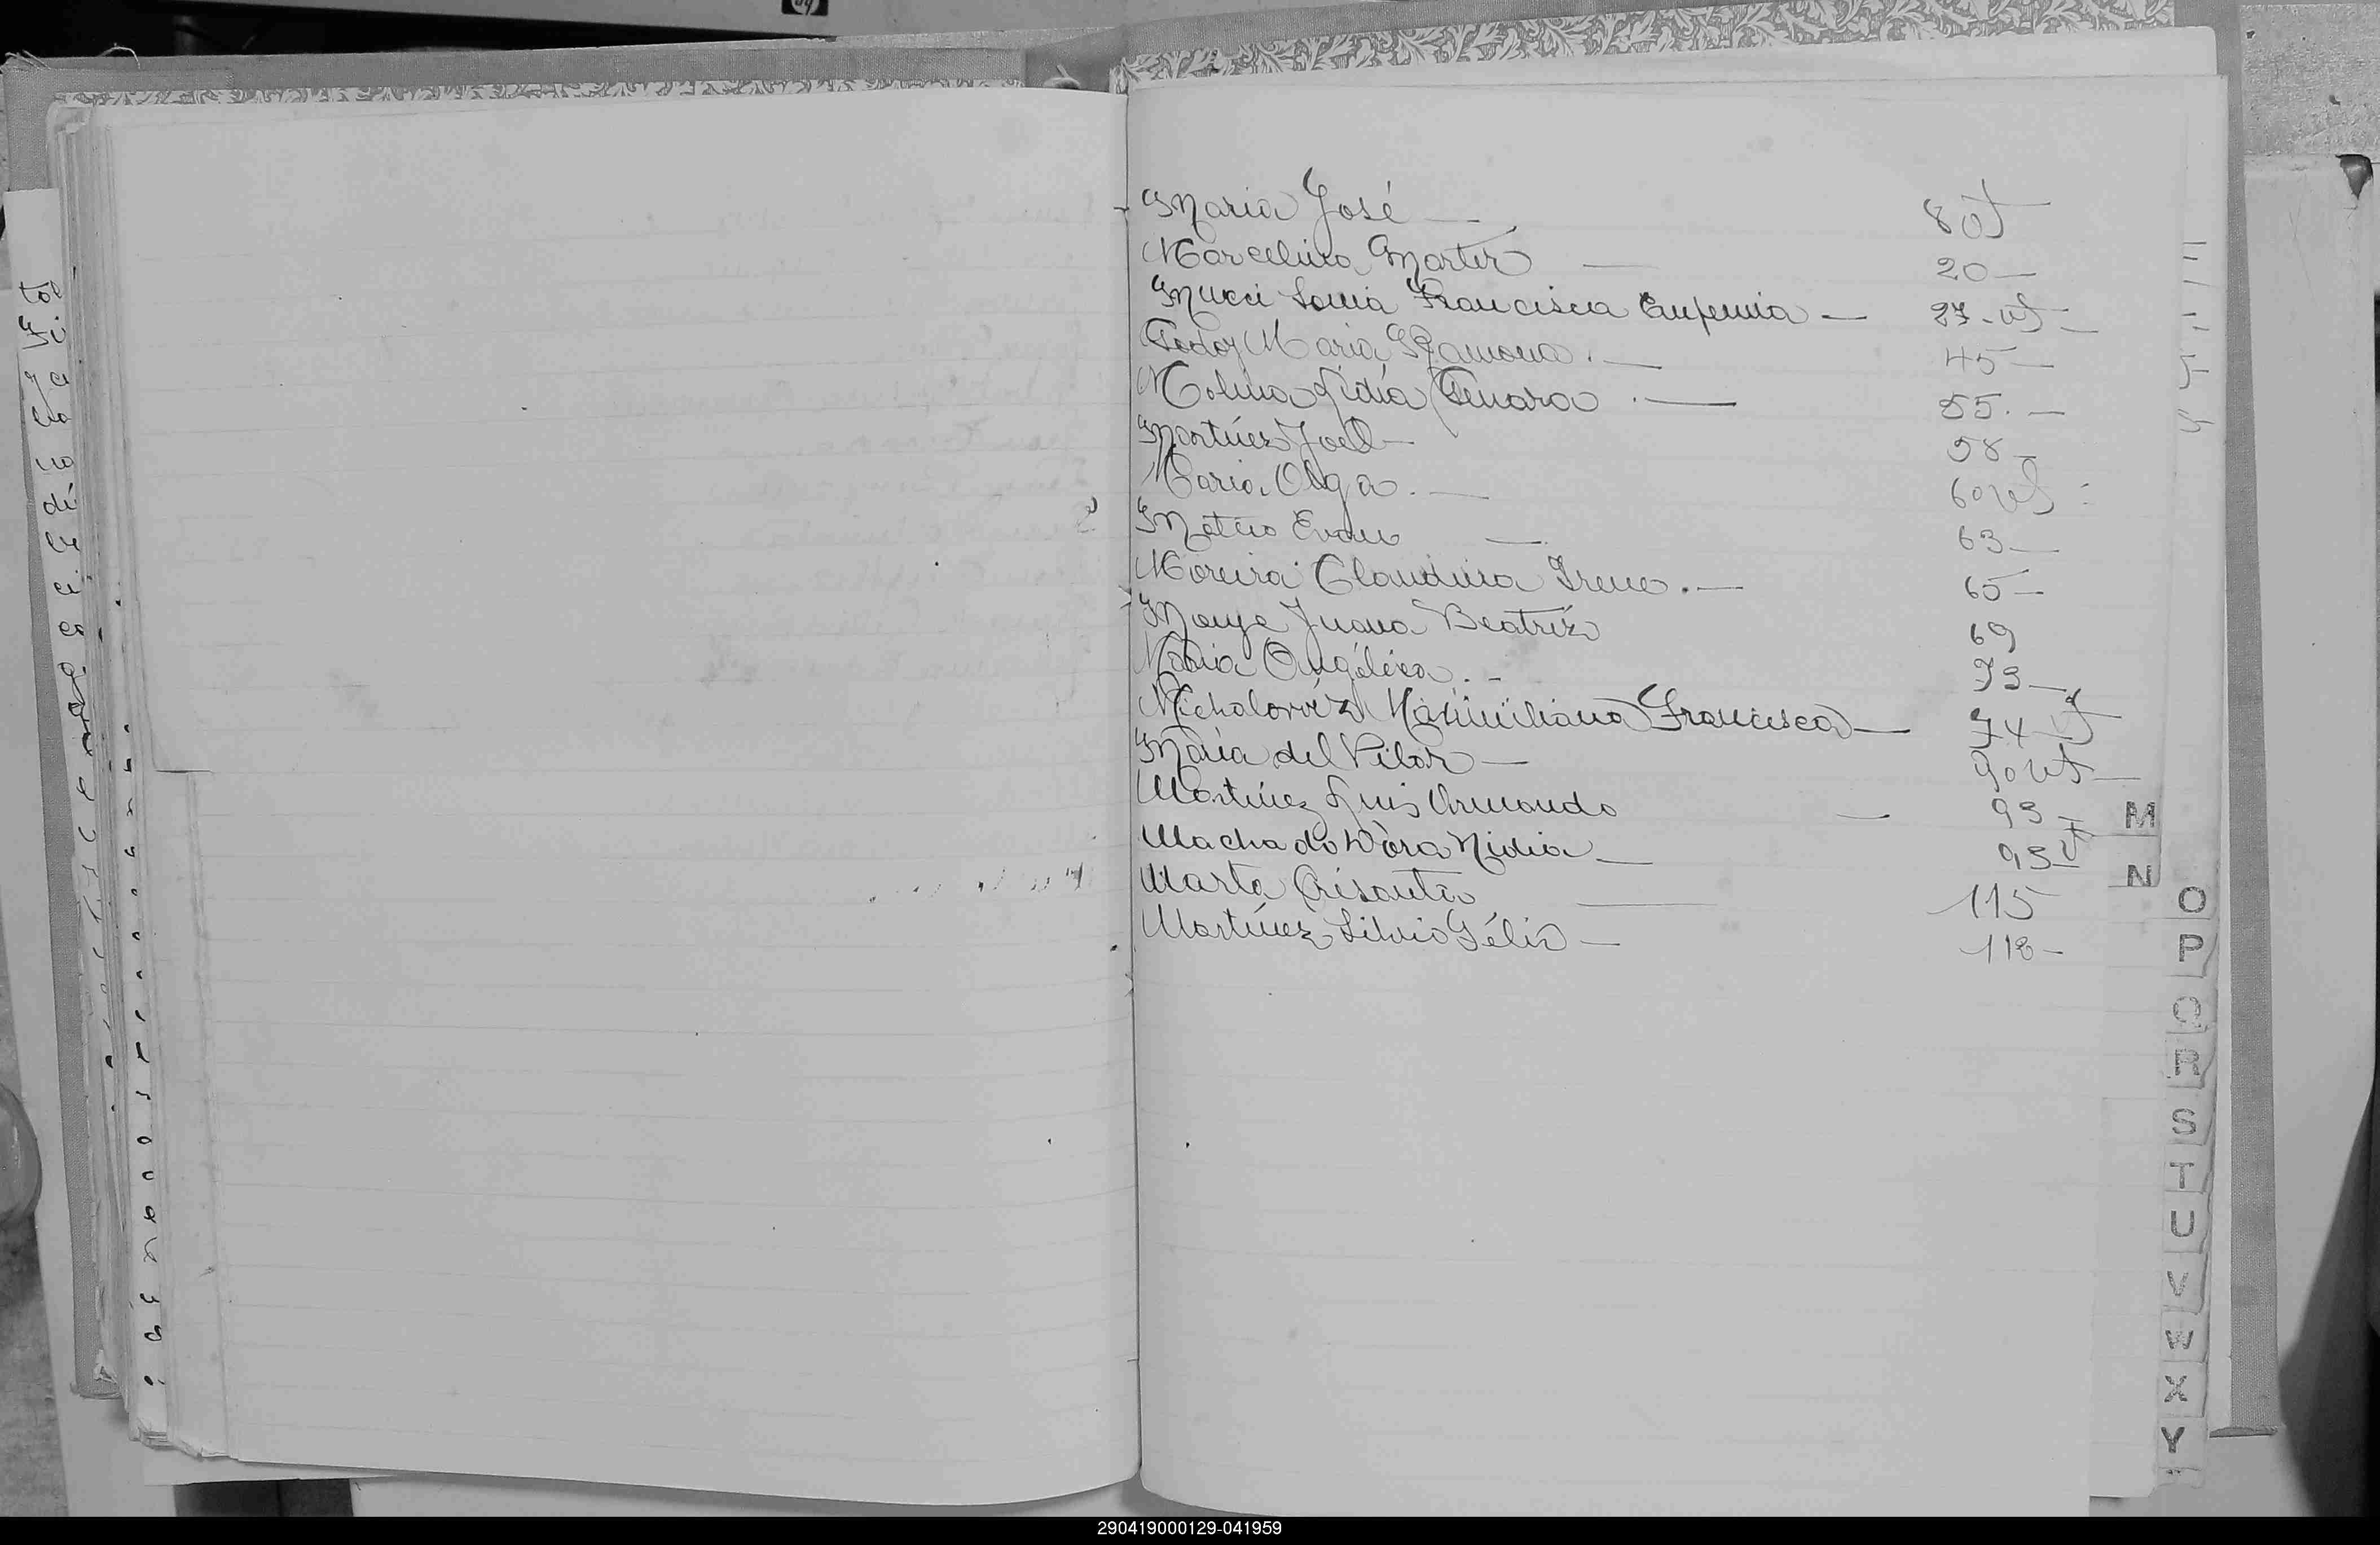 Maria José — 8 vt
Marcelino Martir — 20 —
Mucci Sonia Francisca Eufemia — 27 - vt —
Godoy Maria Ramona. — 45 —
Molina Lidia Genara. — 55. —
Martínez Joel — 58 —
Maria Olga. — 60 vt
63 —
Moreira Claudina Irene. — 65 —
Monje Juana Beatríz 69
Maria Angélica. — 73 —
Michalovvíz Maximiliana Francisca — 74 vt
Maria del Pilar — 90 vt —
Martínez Luis Armando — 93 —
Machado Dora Nidia — 95 vt
Marta Crisanta — 115
Martínez Silvio Félix — 118 —
M
N
O
P
Q
R
S
T
U
V
W
X
Y
290419000129-041959